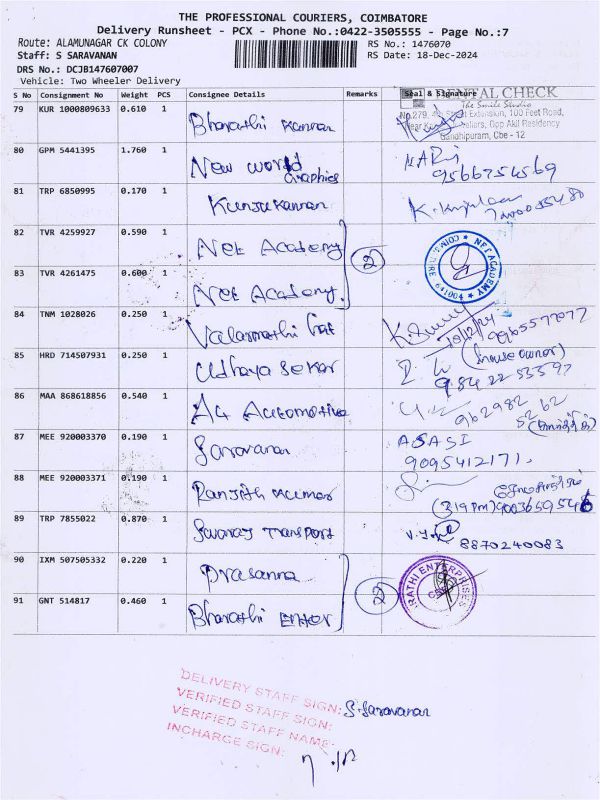 THE PROFESSIONAL COURIERS, COIMBATORE
Delivery Runsheet - PCX - Phone No.:0422-3505555 - Page No.:7
Route: ALAMUNAGAR CK COLONY
RS No.: 1476070
Staff: S SARAVANAN
RS Date: 18-Dec-2024
DRS No.: DCJB147607007
Vehicle: Two Wheeler Delivery
S No Consignment No Weight PCS Consignee Details Remarks Seal & Signature
DENTAL CHECK
The Smile Studio
79 KUR 1000809633 0.610 1 Bharathi Kannan
No.279, Street Extension, 100 Feet Road,
Opp Akil Residency
Gandhipuram, Cbe - 12
80 GPM 5441395 1.760 1 New world Graphics HARI
9566754569
81 TRP 6850995 0.170 1 Kunjukannan
82 TVR 4259927 0.590 1 Net Academy 2
NFT ACADEMY
COIMBATORE 641004
83 TVR 4261475 0.600 1 Net Academy
84 TNM 1028026 0.250 1 Valarmathi
18/12/24
85 HRD 714507931 0.250 1 Udhaya Sekar (house owner)
86 MAA 868618856 0.540 1 A4 Automotive 962982
5262
87 MEE 920003370 0.190 1 Saravanan ASASI
9095412171.
88 MEE 920003371 0.190 1 Ranjith Kumar
(319 pm)
89 TRP 7855022 0.870 1 Swaraj Transport
8870240083
90 IXM 507505332 0.220 1 Prasanna 2
RATHI ENTERPRISES
91 GNT 514817 0.460 1 Bharathi Enter
DELIVERY STAFF SIGN: S. Saravanan
VERIFIED STAFF SIGN:
VERIFIED STAFF NAME:
INCHARGE SIGN: